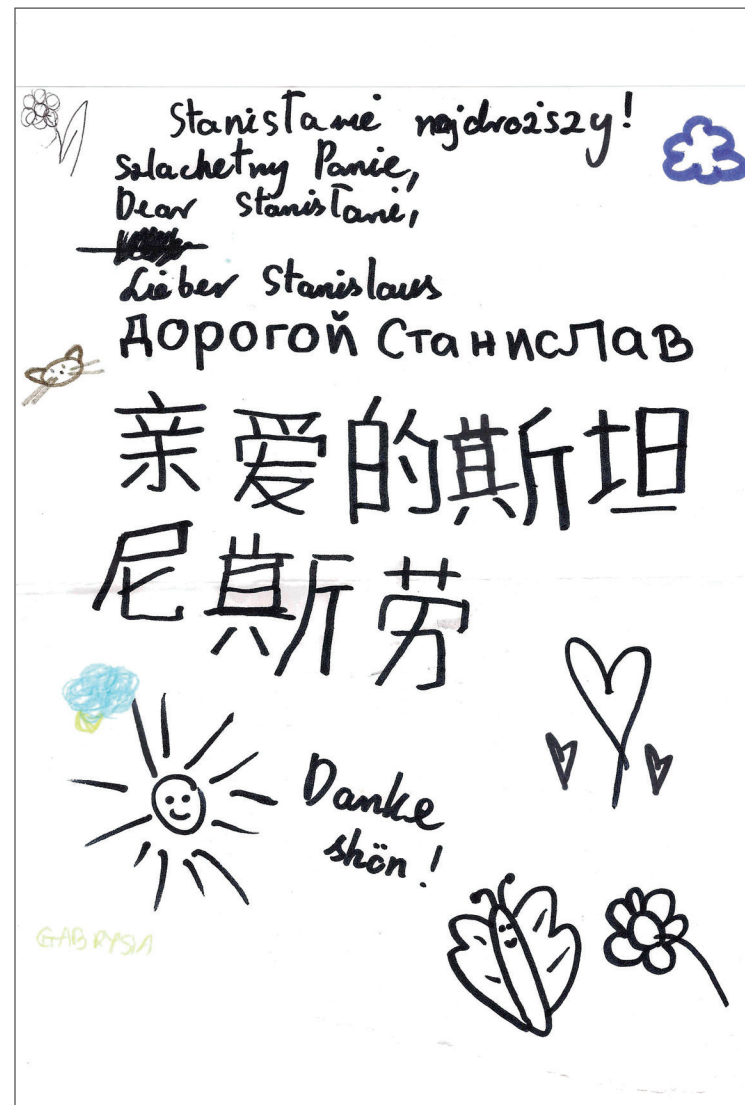 Stanisławie najdroższy!
Szlachetny Panie,
Dear Stanisławie,
Lieber Stanislaus
Дорогой Станислав
亲爱的斯坦
尼斯劳
Danke
shön!
GABRYSIA